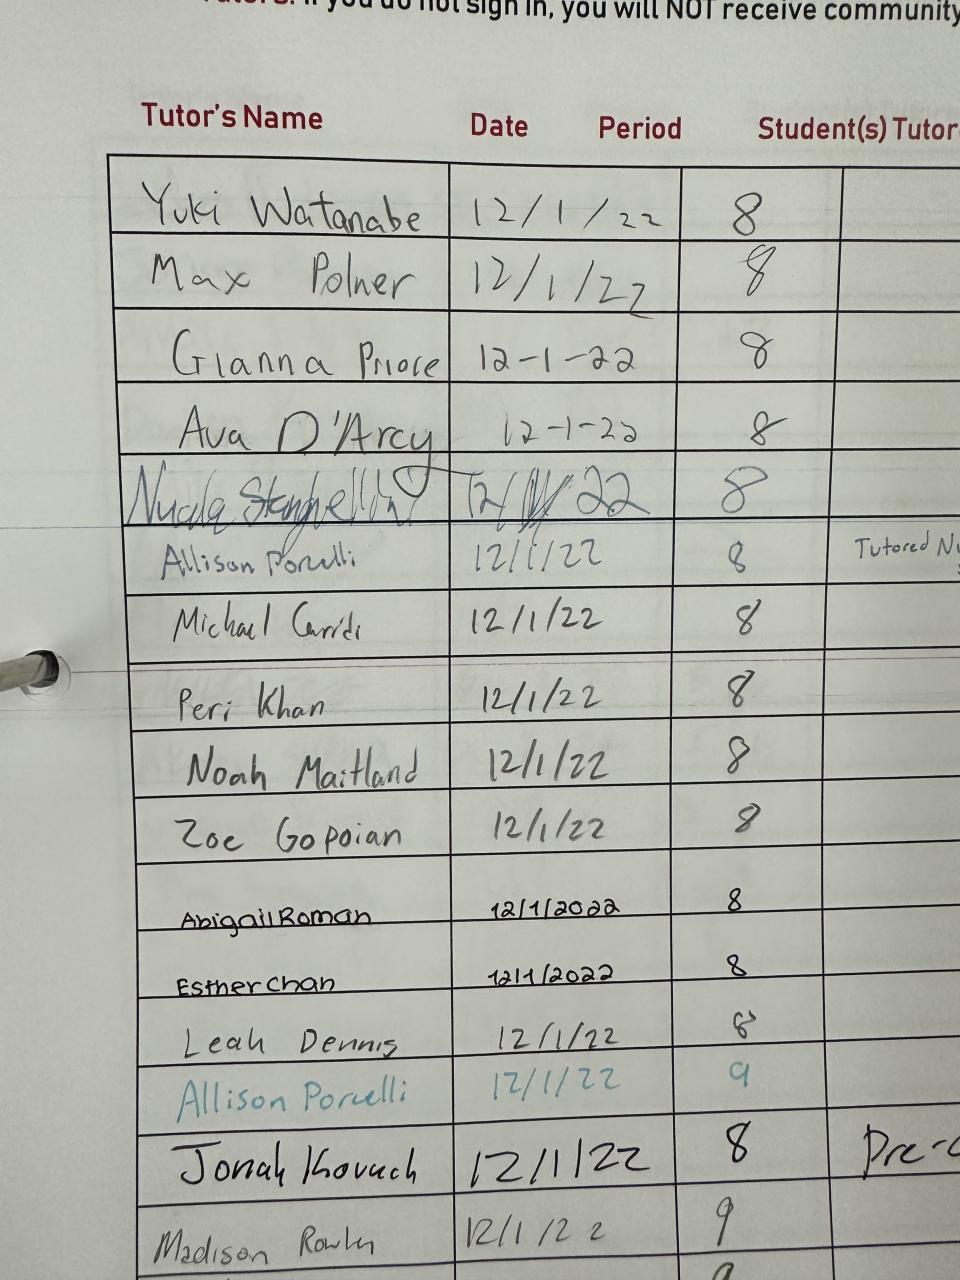 Tutors: If you do not sign in, you will NOT receive community
Tutor's Name Date Period Student(s) Tutor
Yuki Watanabe 12/1/22 8
Max Polner 12/1/22 8
Gianna Priore 12-1-22 8
Ava D'Arcy 12-1-22 8
12/ 22 8
Allison Porcelli 12/1/22 8 Tutored
Michael 12/1/22 8
Peri Khan 12/1/22 8
Noah Maitland 12/1/22 8
Zoe Gopoian 12/1/22 8
Abigail Roman 12/1/2022 8
Esther Chan 12/1/2022 8
Leah Dennis 12/1/22 8
Allison Porcelli 12/1/22 9
Jonah Kovach 12/1/22 8 Pre-c
Madison 12/1/22 9